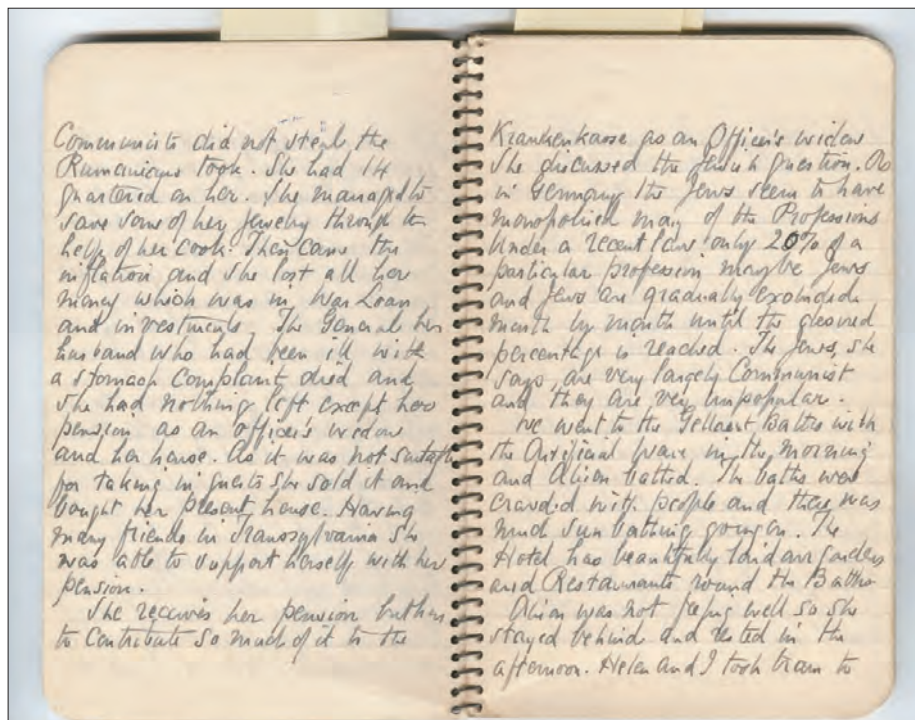 Communists did not steal the
Rumanians took. She had 14
quartered on her. She managed to
save some of her jewelry through the
help of her cook. Then came the
inflation and she lost all her
money which was in War Loan
and investments. The General her
husband who had been ill with
a stomach complaint died and
she had nothing left except her
pension as an officer's widow
and her house. As it was not suitable
for taking in guests she sold it and
bought her present house. Having
many friends in Transylvania she
was able to support herself with her
pension.
She receives her pension but has
to contribute so much of it to the
Krankenkasse as an Officer's widow
She discussed the Jewish question. As
in Germany the Jews seem to have
monopolised many of the Professions
Under a recent law only 20% of a
particular profession may be Jews
and Jews are gradually excluded
month by month until the desired
percentage is reached. The Jews, she
says, are very largely Communist
and they are very unpopular.
We went to the Gellert Baths with
the Artificial wave in the morning
and Alison bathed. The baths were
crowded with people and there was
much sun bathing going on. The
Hotel has beautifully laid out gardens
and Restaurants round the Baths
Alison was not feeling well so she
stayed behind and rested in the
afternoon. Helen and I took tram to